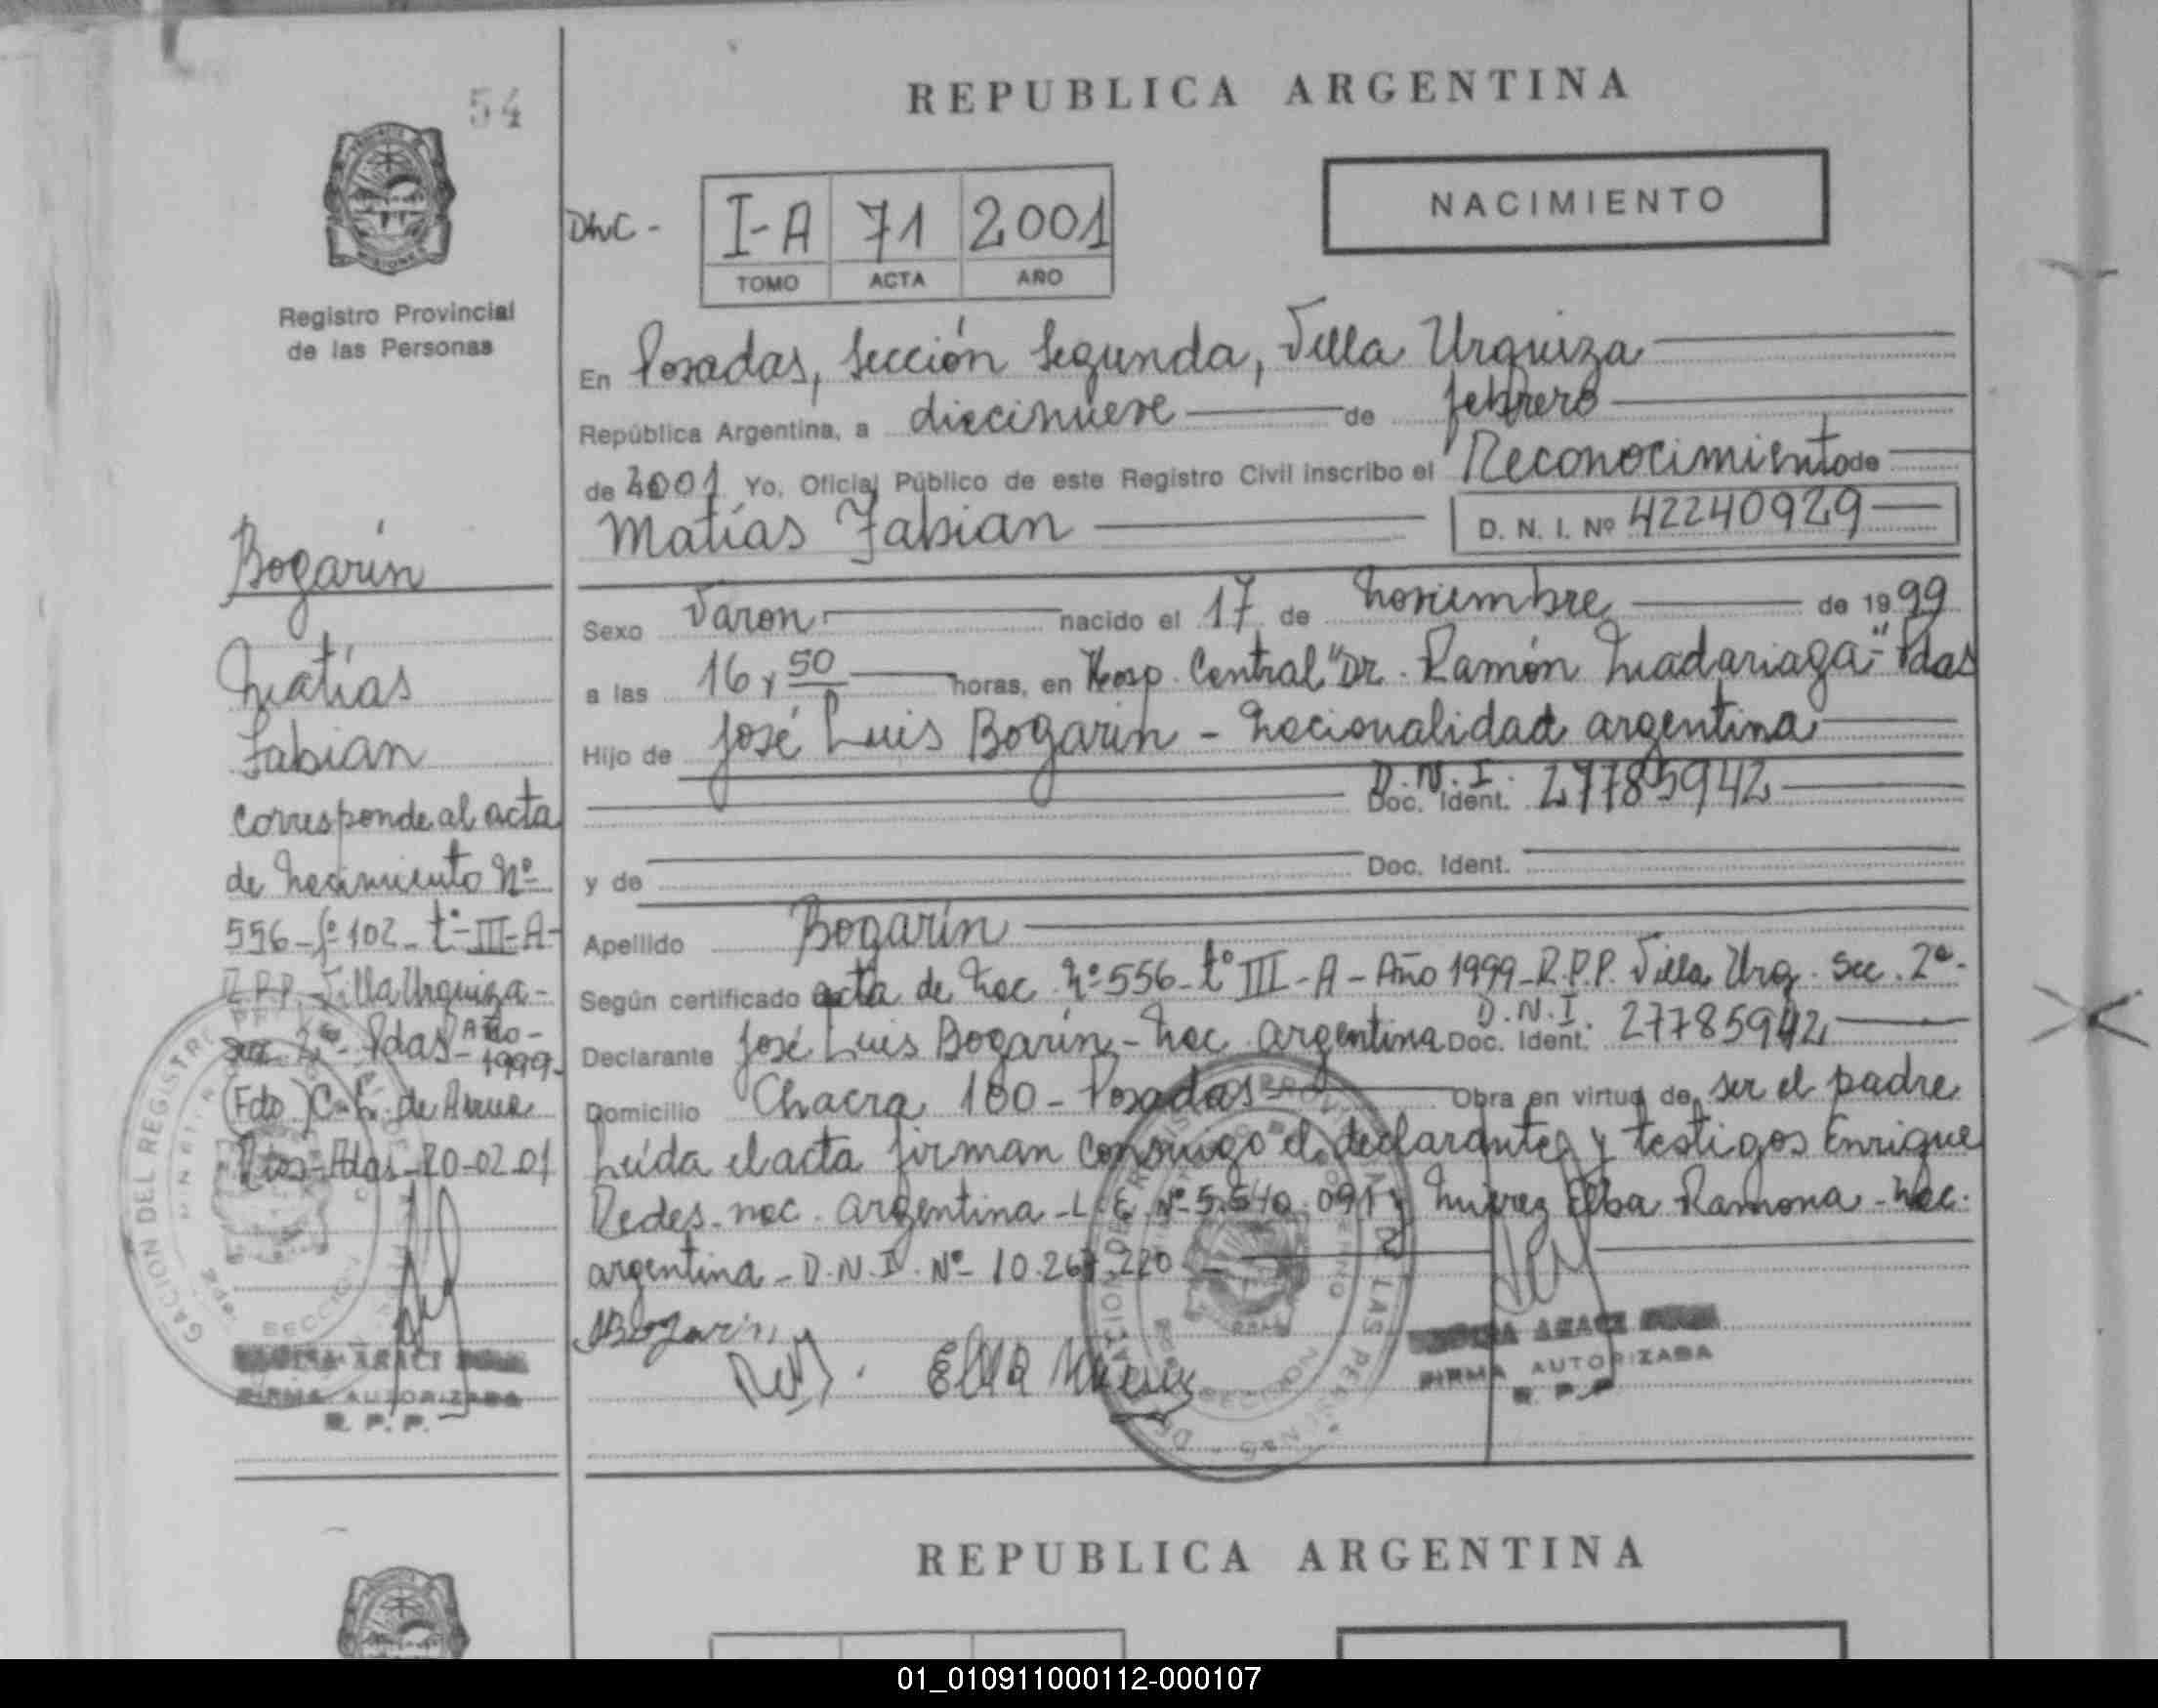 54
REPUBLICA ARGENTINA
NACIMIENTO
I-A 71 2001
TOMO ACTA AÑO
MISIONES
Registro Provincial
de las Personas
En Posadas, Sección Segunda, Villa Urquiza
República Argentina, a diecinueve de febrero
de 2001 Yo, Oficial Público de este Registro Civil inscribo el Reconocimiento de
Matías Fabian D. N. I. Nº 42240929
Sexo Varon nacido el 17 de noviembre de 1999
a las 16 y 50 horas, en Hosp. Central "Dr. Ramón Madariaga" - Pdas
Hijo de José Luis Bogarin - nacionalidad argentina
D.N.I. Doc. Ident. 27785942
y de Doc. Ident.
Apellido Bogarín
Según certificado acta de nac. Nº 556 - tº III - A - Año 1999 - R.P.P. Villa Urq. Sec. 2ª -
Declarante José Luis Bogarín - nac. argentina D.N.I. Doc. Ident. 27785942
Domicilio Chacra 100 - Posadas Obra en virtud de ser el padre
Leída el acta firman conmigo el declarante y testigos Enrique
Redes - nac. argentina - L.E. Nº 5.540.091 y Elba Ramona - nac.
argentina - D.N.I. Nº 10.267.220
Bogarin
Elba
FIRMA AUTORIZADA
R. P. P.
Bogarín
Matías
Fabian
Corresponde al acta
de nacimiento Nº
556 - fº 102 - tº - III - A -
R.P.P. Villa Urquiza -
Sec. 2ª - Pdas - Año -
1999 -
(Fdo.) de
Pdas - 20-02-01
ARACI
FIRMA AUTORIZADA
R. P. P.
REPUBLICA ARGENTINA
01_010911000112-000107